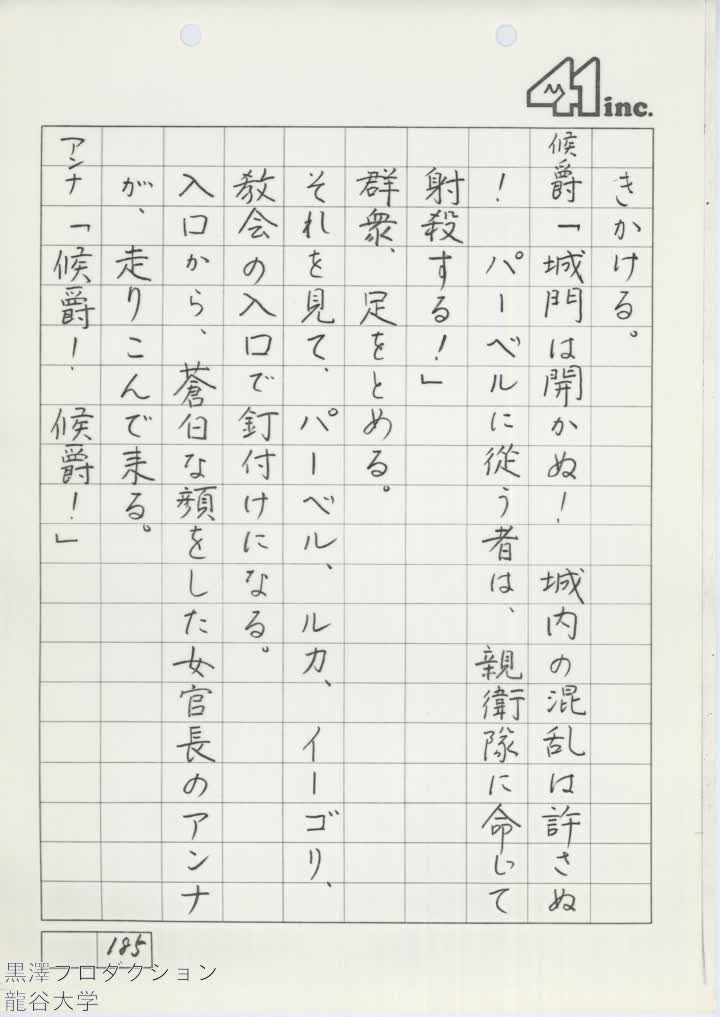 41 inc.
きかける。
候爵「城門は開かぬ！　城内の混乱は許さぬ
！　パーベルに従う者は、親衛隊に命じて
射殺する！」
群衆、足をとめる。
それを見て、パーベル、ルカ、イーゴリ、
教会の入口で釘付けになる。
入口から、蒼白な顔をした女官長のアンナ
が、走りこんで来る。
アンナ「候爵！　候爵！」
185
黒澤プロダクション
龍谷大学